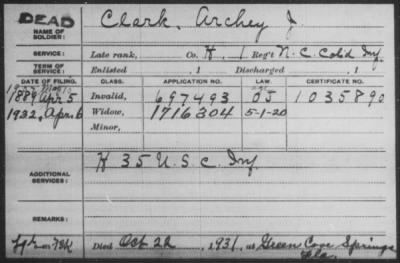 DEAD
NAME OF SOLDIER: Clark, Archey J.
SERVICE: Late rank, Co. H, 1 Reg't N.C. Col'd Inf.
TERM OF SERVICE: Enlisted , 1 Discharged , 1
DATE OF FILING. CLASS. APPLICATION NO. LAW. CERTIFICATE NO.
1889 Apr 5 Invalid, 697493 1035890
1932, Apr. 6 Widow, 1716304 5-1-20
Minor,
ADDITIONAL SERVICES: H 35 U.S.C. Inf.
REMARKS:
Died Oct 22, 1931, at Green Cove Springs
Fla.